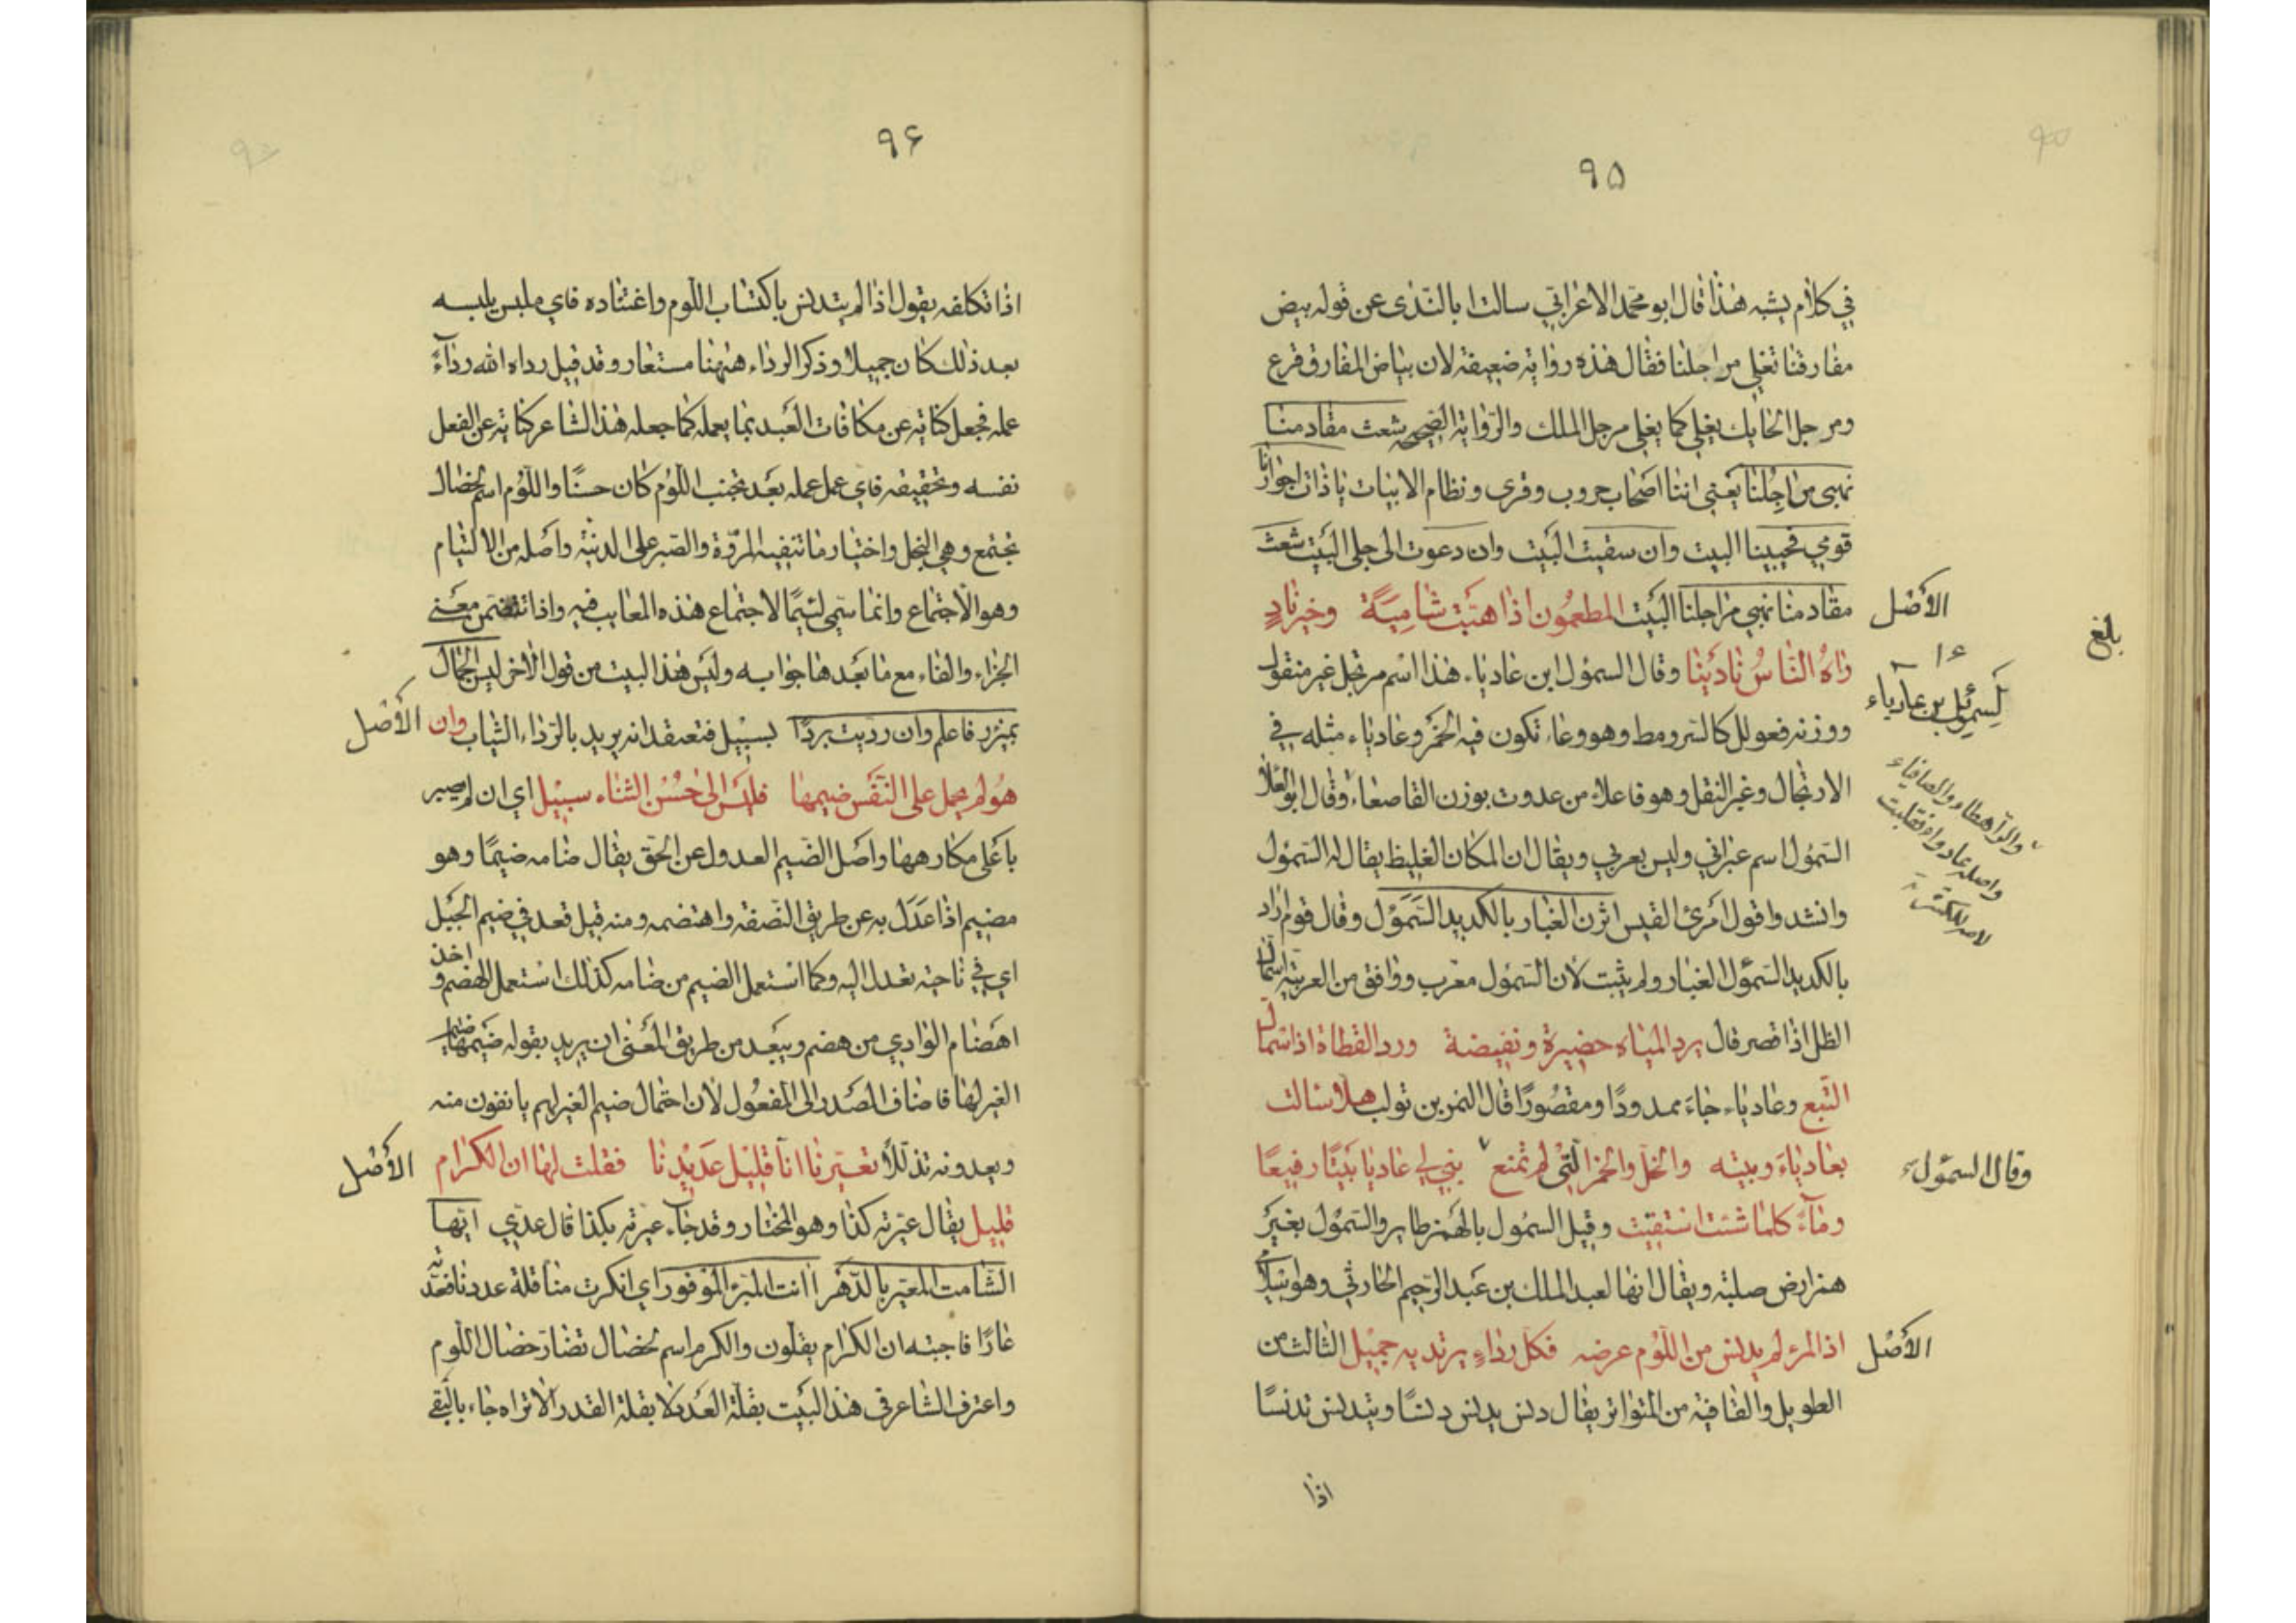 ٩٥
في كلام يشبه هذا قال ابو محمد الاعرابي سالت ابا الندى عن قوله بيض
مفارقنا تغلي مراجلنا فقال هذه رواية ضعيفة لان بياض المفارق قرع
ومرجل الحايك يغلي كما يغلي مرجل الملك والرواية الصحيحه شعث مقادمنا
نهبى مراجلنا يعني اننا اصحاب حروب وقرى ونظام الابيات ياذات اجوارنا
قومي فحيينا البيت وان سقيت البيت وان دعوت الى جلى البيت شعث
مقادمنا نهبي مراجلنا البيت المطعمون اذا هبت شامية وخير ناد
الأصل
بلغ
راه الناس نادينا وقال السمؤل ابن عادياء هذا اسم مرتجل غير منقول
لسموئل بن عادياء
ووزنه فعولل كالسرومط وهو وعاء تكون فيه الخمر وعادياء مثله في
الارتجال وغير النقل وهو فاعلاء من عدوت بوزن القاصعاء وقال ابو العلا
والراهطاء والصافياء
واصله عادواء فقلبت
السمؤل اسم عبراني وليس بعربي ويقال ان المكان الغليظ يقال له السمؤل
وانشدوا قول امرئ القيس اثرن الغبار بالكديد السمؤل وقال قوم اراد
بالكديد السمؤل الغبار ولم يثبت لأن السمؤل معرب ووافق من العربية اسمأل
الظل اذا قصر قال يرد المياه حضيرة ونفيضة ورد القطاة اذا اسمأل
التبع وعادياء جاء ممدودًا ومقصورًا قال النمر بن تولب هلا سالت
بعادياء وبيته والخل والخمر التي لم تمنع بنى لي عاديا بيتًا رفيعًا
وقال السموئل
وماء كلما شئت استقيت وقيل السمؤل بالهمز طاير والسمؤل بغير
همز ارض صلبة ويقال انها لعبد الملك بن عبد الرحيم الحارثي وهو اسلامي
اذا المرء لم يدنس من اللؤم عرضه فكل رداء يرتديه جميل الثالث من
الأصل
الطويل والقافية من المتواتر يقال دنس يدنس دنسًا وتيدنس تدنسًا
اذا
٩٦
اذا تكلفه يقول اذا لم يتدنس باكتساب اللوم واعتياده فاي ملبس يلبسه
بعد ذلك كان جميلا وذكر الرداء ههنا مستعار وقد قيل رداه الله رداءً
عمله فجعل كناية عن مكافات العبد بما يعمله كما جعله هذا الشاعر كناية عن الفعل
نفسه وتحقيقه فاي عمل عمله بعد تجنب اللؤم كان حسنًا واللؤم اسم لخصال
تجتمع وهي البخل واختيار ما تنفيه المروة والصبر على الدنية واصله من الالتيام
وهو الاجتماع وانما سمي لئيمًا لاجتماع هذه المعايب فيه واذا تضمن معنى
الجزاء والفاء مع ما بعدها جوابه وليس هذا البيت من قول الاخر ليس الجمال
بمئزر فاعلم وان رديت بردًا بسبيل فتعتقد انه يريد بالرداء الثياب وان
الأصل
هو لم يحمل على النفس ضيمها فليس الى حسن الثناء سبيل اي ان لم يصبر
با على مكارهها واصل الضيم العدول عن الحق يقال ضامه ضيمًا وهو
مضيم اذا عدل به عن طريق النصفة واهتضمه ومنه قيل قعد في ضيم الجبل
اي في ناحية تعدل اليه وكما استعمل الضيم من ضامه كذلك استعمل الهضم واخذ
اهضام الوادي من هضم ويبعد من طريق المعنى ان يريد بقوله ضيمها ضيم
الغير لها فاضاف المصدر الى المفعول لأن احتمال ضيم الغير لهم يانفون منه
ويعدونه تذللًا تعيرنا انا قليل عديدنا فقلت لها ان الكرام
الأصل
قليل يقال عيرته كذا وهو المختار وقد جاء عيرته بكذا قال عدي ايها
الشامت المعير بالدهر اانت المبرء الموفور اي انكرت منا قلة عددنا فعدته
عارًا فاجبته ان الكرام يقلون والكرم اسم لخصال تضاد خصال اللوم
واعترف الشاعر في هذا البيت بقلة العدد لا بقلة القدر الا تراه جاء بالتقى